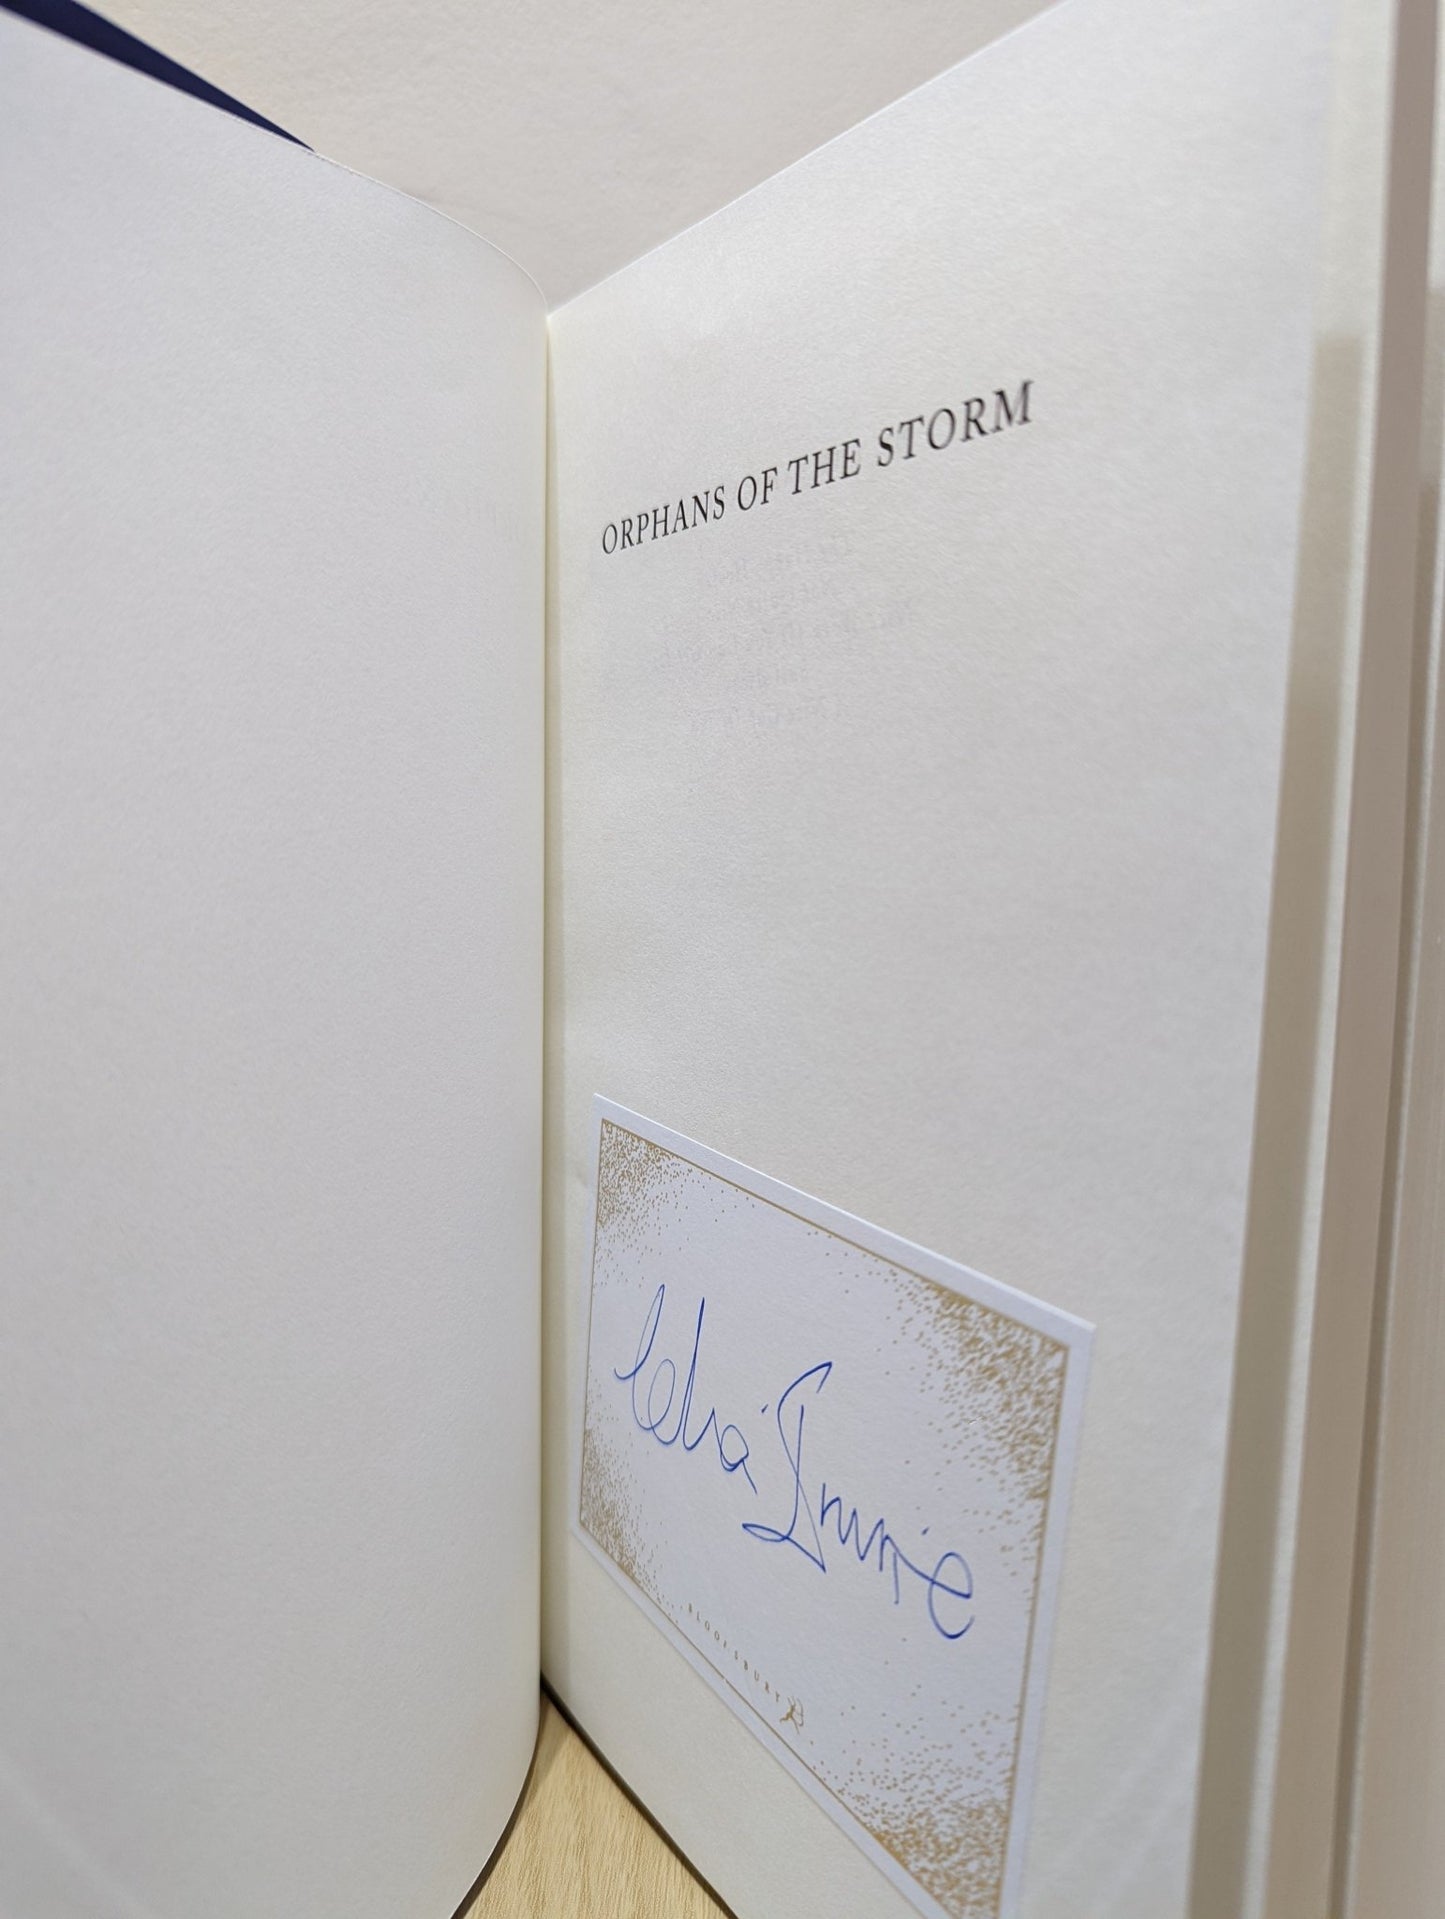 ORPHANS OF THE STORM
Celia Imrie
BLOOMSBURY